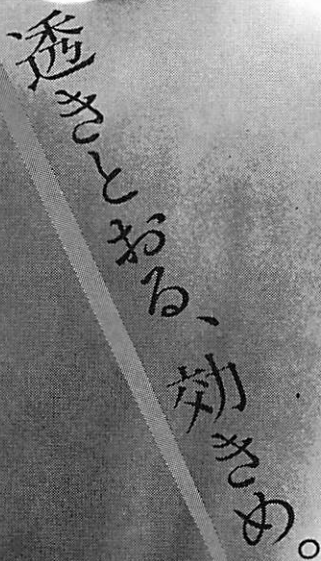 透きとおる、効きめ。